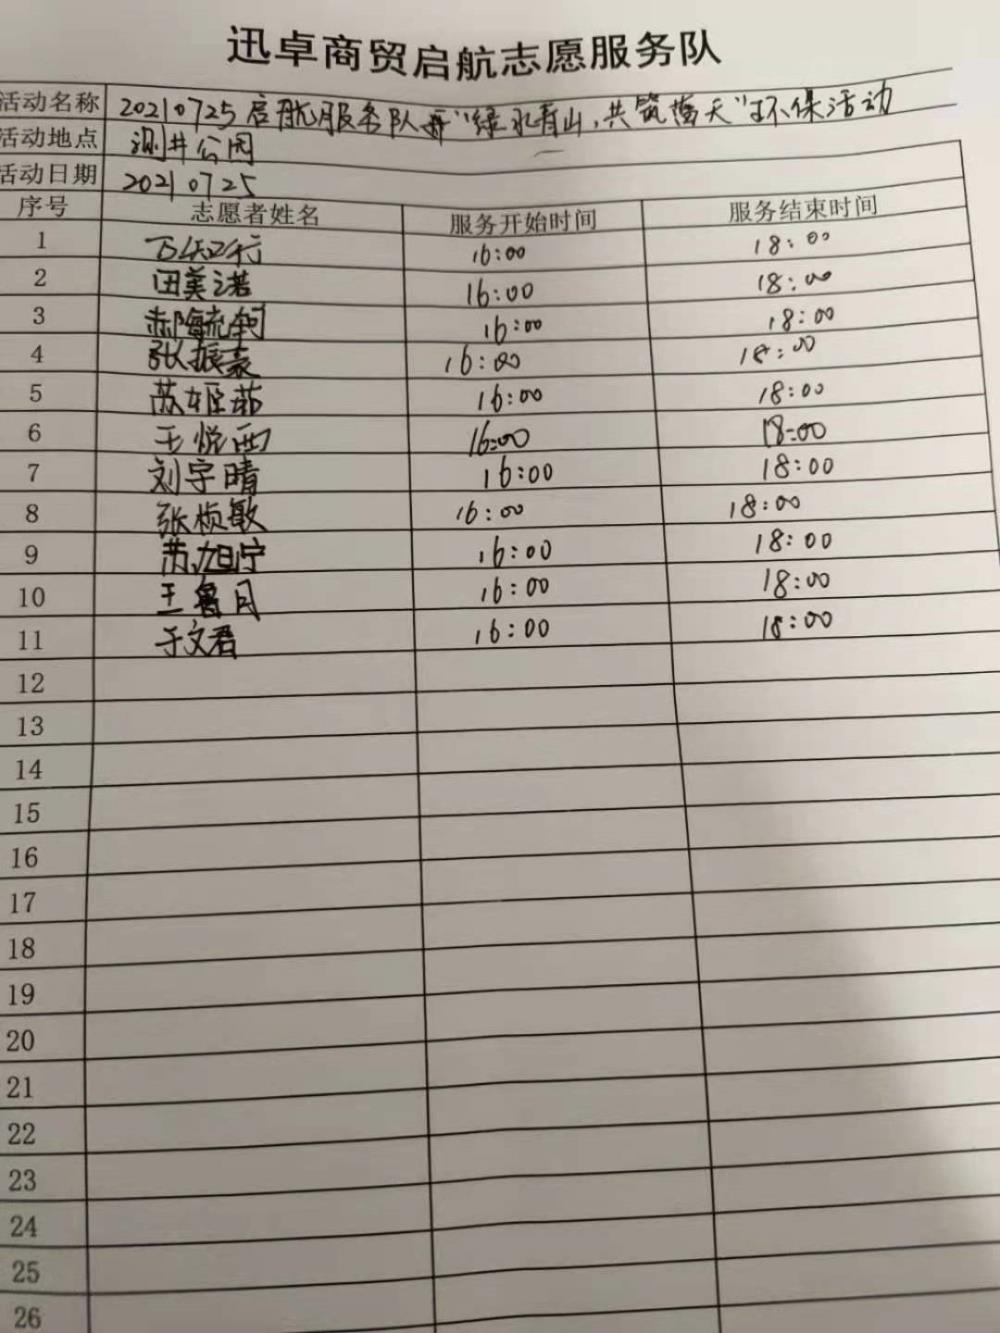 迅卓商贸启航志愿服务队
活动名称 20210725启航服务队 "绿水青山,共筑蓝天"环保活动
活动地点 测井公园
活动日期 20210725
序号 志愿者姓名 服务开始时间 服务结束时间
1 万知行 16:00 18:00
2 田美诺 16:00 18:00
3 16:00 18:00
4 张振豪 16:00 18:00
5 苏姬茹 16:00 18:00
6 王悦西 16:00 18:00
7 刘宇晴 16:00 18:00
8 张桢敏 16:00 18:00
9 苏旭宁 16:00 18:00
10 王鲁月 16:00 18:00
11 于文君 16:00 18:00
12
13
14
15
16
17
18
19
20
21
22
23
24
25
26